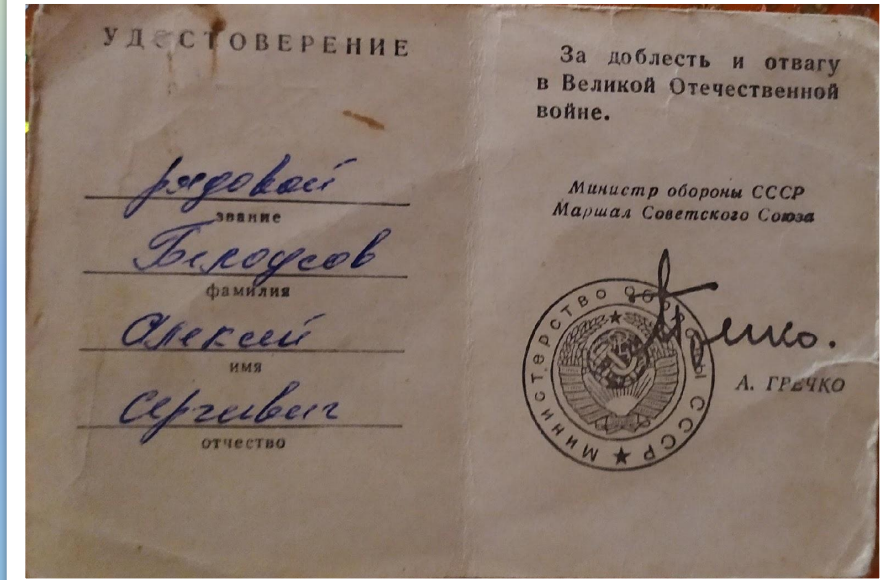 УДОСТОВЕРЕНИЕ
рядовой
звание
фамилия
Алексей
имя
Сергеевич
отчество
За доблесть и отвагу
в Великой Отечественной
войне.
Министр обороны СССР
Маршал Советского Союза
Министерство Обороны СССР
А. ГРЕЧКО